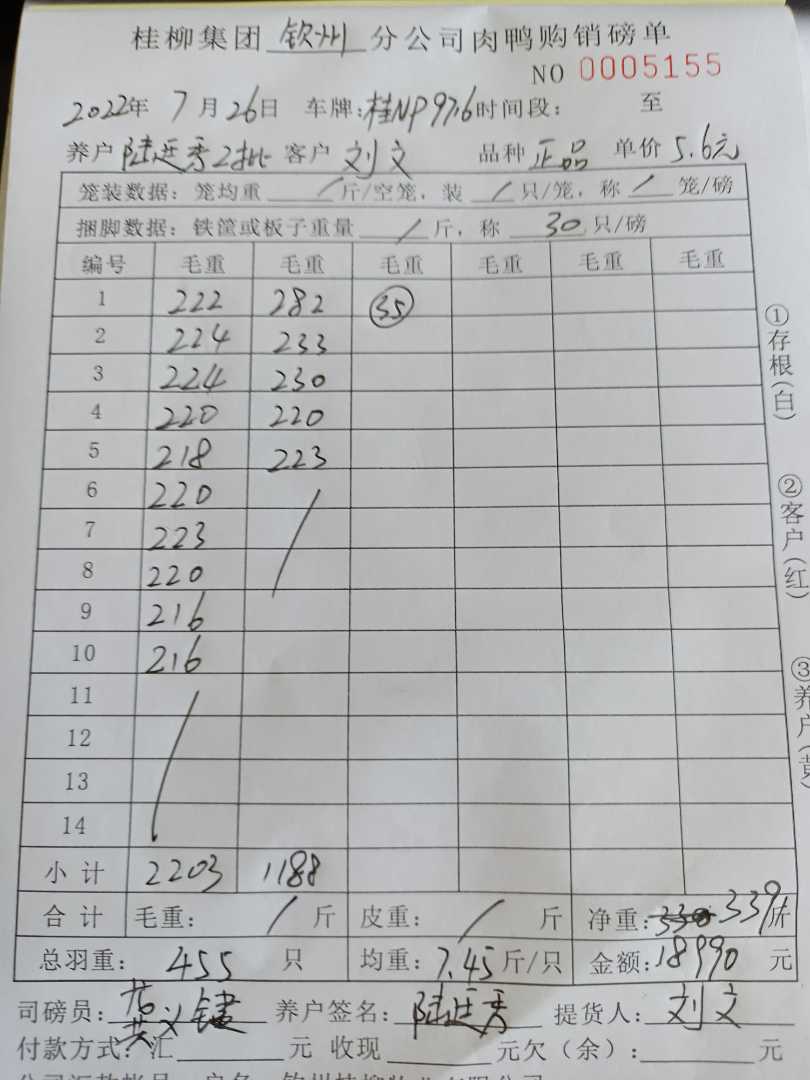 桂柳集团 钦州 分公司肉鸭购销磅单
NO 0005155
2022年 7月26日 车牌:桂NP97.6时间段: 至
养户 陆廷秀2批 客户 刘文 品种 正品 单价 5.6元
笼装数据: 笼均重 / 斤/空笼, 装 / 只/笼, 称 / 笼/磅
捆脚数据: 铁筐或板子重量 / 斤, 称 30 只/磅
编号 毛重 毛重 毛重 毛重 毛重 毛重
1 222 282 35
2 224 233
3 224 230
4 220 220
5 218 223
6 220
7 223
8 220
9 216
10 216
11
12
13
14
小计 2203 1188
合计 毛重: / 斤 皮重: / 斤 净重: 339 斤
总羽重: 455 只 均重: 7.45斤/只 金额:18990 元
司磅员: 养户签名: 陆廷秀 提货人: 刘文
付款方式: 汇 元 收现 元欠(余): 元
①存根(白)
②客户(红)
③养户(黄)